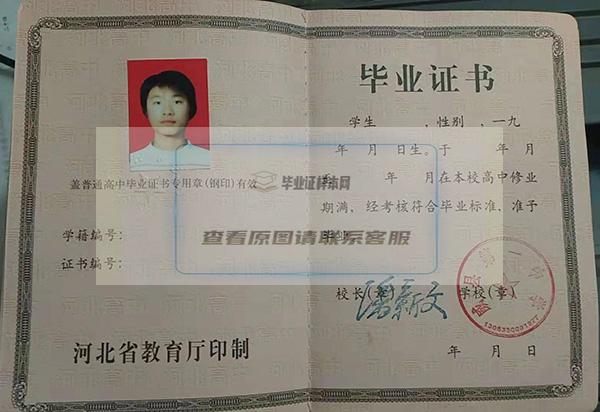 盖普通高中毕业证书专用章(钢印)有效
学籍编号:
证书编号:
河北省教育厅印制
毕业证书
学生 ,性别 ,一九
年 月 日生。于 年 月
年 月在本校高中修业
期满,经考核符合毕业标准,准予
毕业。
校长(章) 学校(章)
潘新文
年 月 日
毕业证样本网
查看原图请联系客服